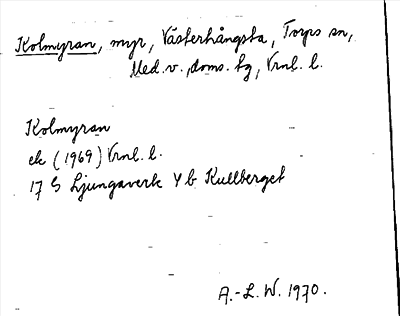 Kolmyran, myr, Västerhångsta, Torps sn,
Med. v. doms. tg, Vrnl. l.
Kolmyran
ek (1969) Vrnl. l.
17 G Ljungaverk Y b Kullberget
A.-L. W. 1970.